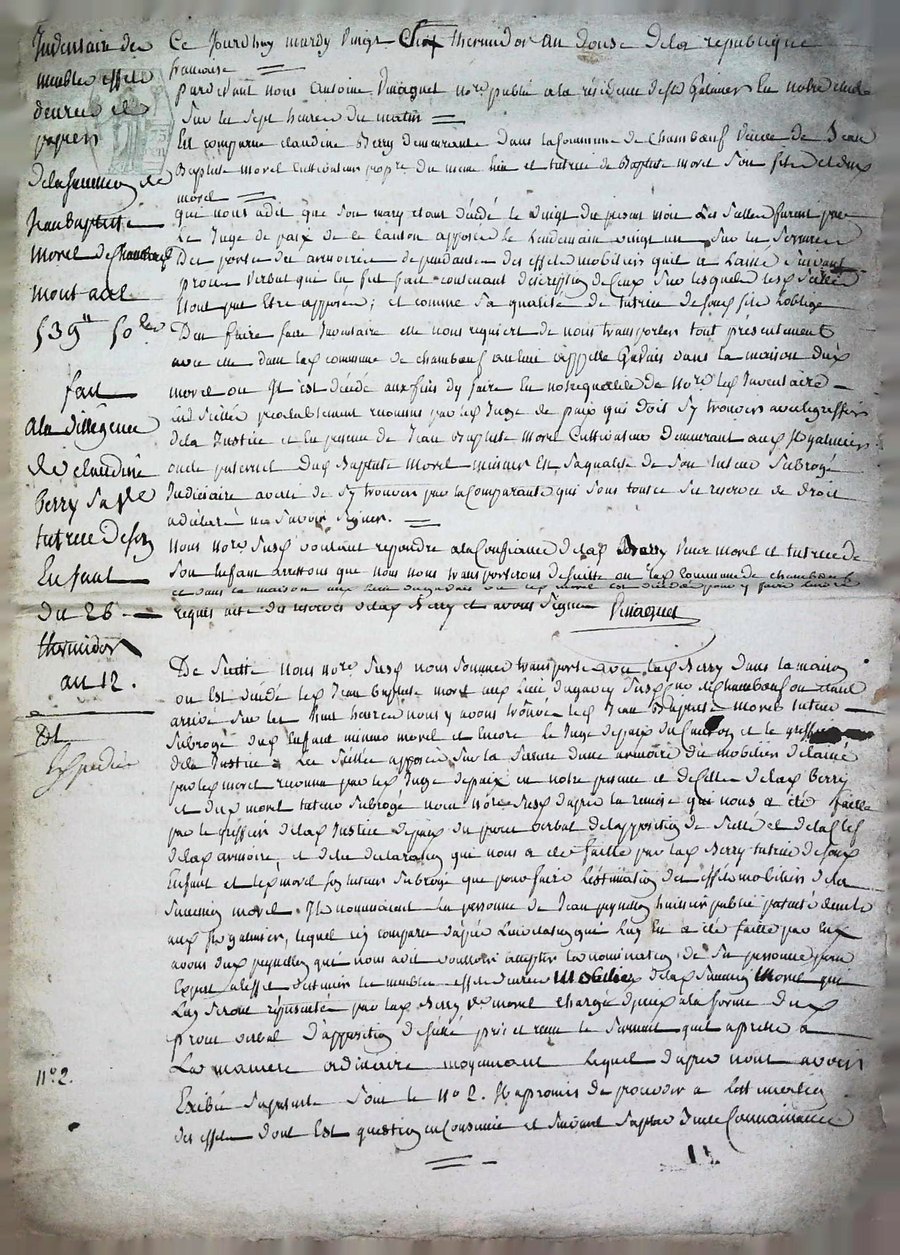 Inventaire des
meubles effets
denrées et
papiers
de la succession de
Jean Baptiste
Morel de Chambeuf
montant
539# 50
fait
a la dilligence
de claudine
Berry sa Ve
tutrice de son
Enfant
du 26
thermidor
an 12.
Est
Expédié
n.° 2.
Ce Jourdhuy mardy vingt Six thermidor an Douse de la republique
francoise
pardevant nous antoine not.re public a la résidence de St Galmier En notre étude
Sur les sept heures du matin
Est comparue claudine Berry demeurante dans la Commune de Chambeuf veuve de Jean
Baptiste morel cultivateur propre du meme lieu et tutrice de Baptiste morel son fils et dud
morel
qui nous a dit que son mary etant décédé le vingt du présent mois les scellés furent par
le Juge de paix de ce canton apposés le lendemain vingt un sur les serrures
des portes des armoires dependantes des effets mobiliers quil a laissé suivant
proces verbal qui en fut fait contenant description de ceux sur lesquels les scellés
nont pu être apposés; et comme sa qualité de tutrice de son fils loblige
Den faire faire Inventaire elle nous requiert de nous transporter tout présentement
avec elle dans la commune de chambeuf au lieu appellé dans la maison dud
morel ou Il est décédé aux fins dy faire en notre qualité de not.re led Inventaire
les scellés préalablement reconnus par led Juge de paix qui doit sy trouver avec le greffier
de la Justice et en présence de Jean Baptiste morel cultivateur demeurant aud St galmier
oncle paternel dud Baptiste morel mineur En sa qualité de son tuteur subrogé
Judiciaire averti de sy trouver par la Comparante qui sous toutes ses reserves de droit
a déclaré ne savoir signer.
Nous not.re susd voulant repondre a la Confiance de lad Berry veuve morel et tutrice de
son Enfant arrestons que nous nous transporterons de suitte en lad Commune de chambeuf
et dans la maison aud lieu ou led morel est décédé pour y faire
requis acte des reserves de lad Berry et avons signé
De suitte nous not.re susd nous sommes transporté avec lad Berry dans la maison
ou Est décédé led Jean Baptiste morel aud lieu susd de chambeuf ou étant
arrivé sur les huit heures nous y avons trouvé led Jean Baptiste morel tuteur
subrogé dud Enfant mineur morel et encore le Juge de paix du Canton et le greffier
de la Justice. Les scellés apposés sur la serrure dune armoire du mobilier délaissé
par led morel reconnu par led Juge de paix en notre présence et de celle de lad Berry
et dud morel tuteur subrogé nous not.re susd dapres la remise qui nous a été faitte
par le greffier de lad Justice de paix du proces verbal de lapposition de scellé et de la clef
de lad armoire, et de la declaration qui nous a été faitte par lad Berry tutrice de son
Enfant et led morel son tuteur subrogé que pour faire lestimation des effets mobiliers de la
succession morel. Ils nommaient la personne de Jean huissier public patenté demt
aud St galmier, lequel icy comparu dapres linvitation qui luy En a été faitte par Eux
avons dud qui nous a dit vouloir accepter la nomination de sa personne pour
Expert a leffet destimer les meubles effets denrées mobilier de lad succession Morel qui
luy seront représentés par lad Berry Ve morel chargé diceux a la forme dud
proces verbal dapposition de scellé pris et reçu le serment quil a prété a
la maniere ordinaire moyennant lequel dapres nous avoir
Exibé sa patente sous le n.° 2. Il a promis de proceder a lestimation
des effets dont Est question en Conscience et suivant sa Connaissance